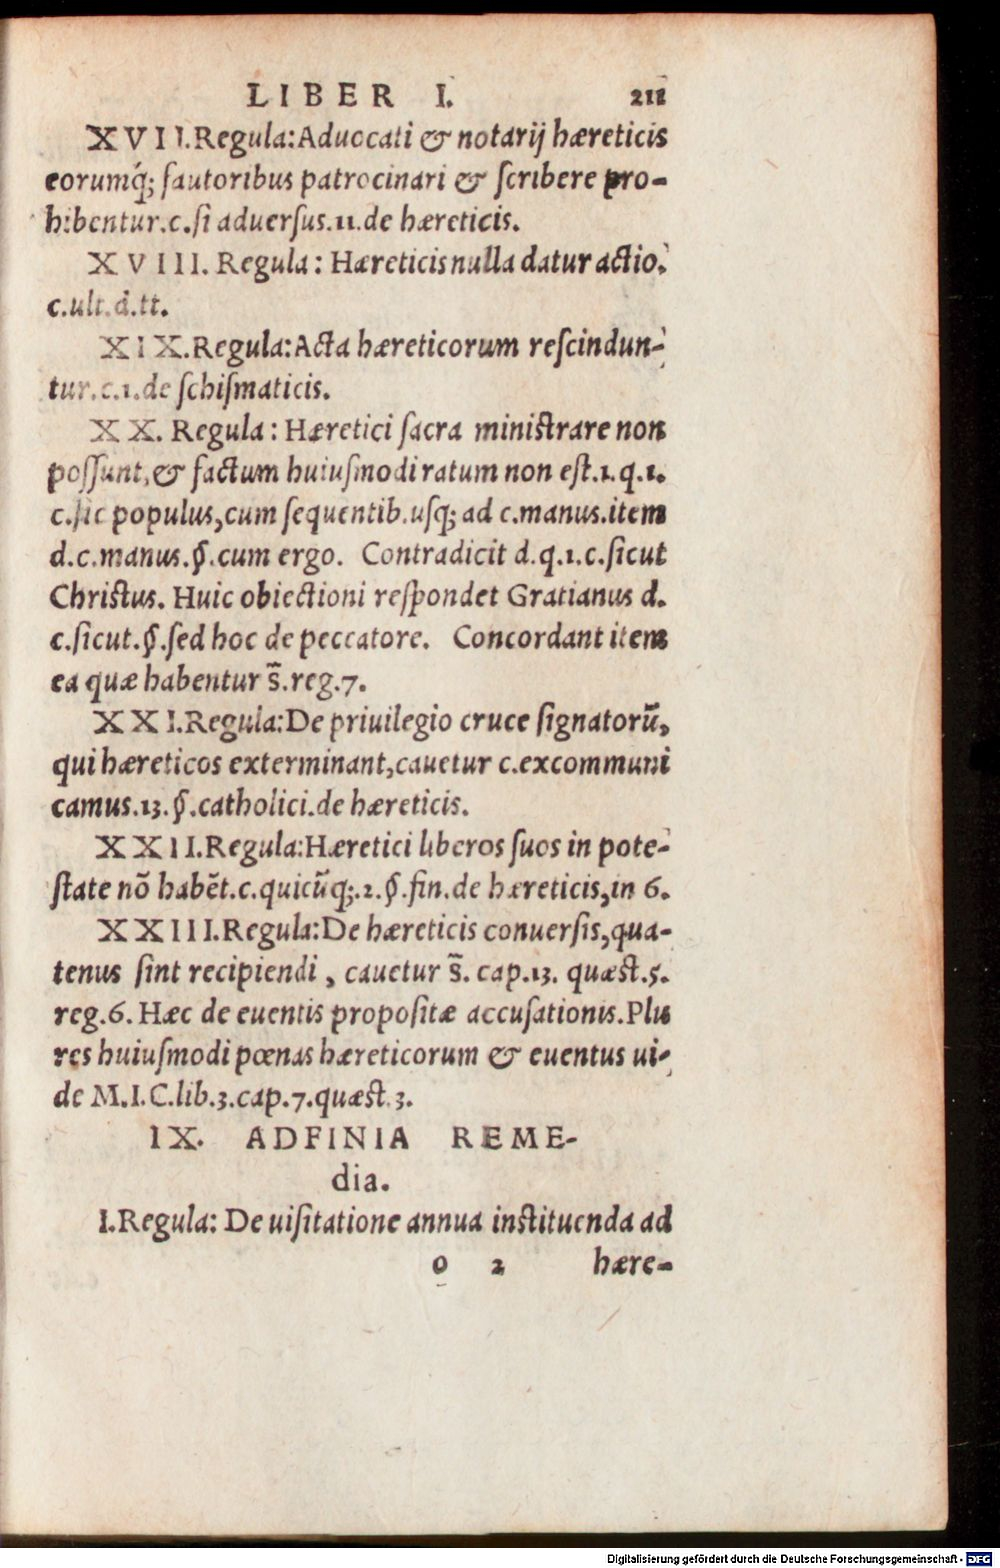 LIBER I. 211
XVII. Regula: Aduocati & notarij hæreticis
eorumq́; fautoribus patrocinari & scribere pro-
hibentur. c. si aduersus. 11. de hæreticis.
XVIII. Regula: Hæreticis nulla datur actio.
c. ult. d. tt.
XIX. Regula: Acta hæreticorum rescindun-
tur. c. 1. de schismaticis.
XX. Regula: Hæretici sacra ministrare non
possunt, & factum huiusmodi ratum non est. 1. q. 1.
c. sic populus, cum sequentib. usq; ad c. manus. item
d. c. manus. §. cum ergo. Contradicit d. q. 1. c. sicut
Christus. Huic obiectioni respondet Gratianus d.
c. sicut. §. sed hoc de peccatore. Concordant item
ea quæ habentur s̄. reg. 7.
XXI. Regula: De priuilegio cruce signatorū,
qui hæreticos exterminant, cauetur c. excommuni
camus. 13. §. catholici. de hæreticis.
XXII. Regula: Hæretici liberos suos in pote-
state nō habēt. c. quicūq;. 2. §. fin. de hæreticis, in 6.
XXIII. Regula: De hæreticis conuersis, qua-
tenus sint recipiendi, cauetur s̄. cap. 13. quæst. 5.
reg. 6. Hæc de euentis propositæ accusationis. Plu
res huiusmodi pœnas hæreticorum & euentus ui-
de M. I. C. lib. 3. cap. 7. quæst. 3.
IX. ADFINIA REME-
dia.
I. Regula: De uisitatione annua instituenda ad
o 2 hære-
Digitalisierung gefördert durch die Deutsche Forschungsgemeinschaft - DFG